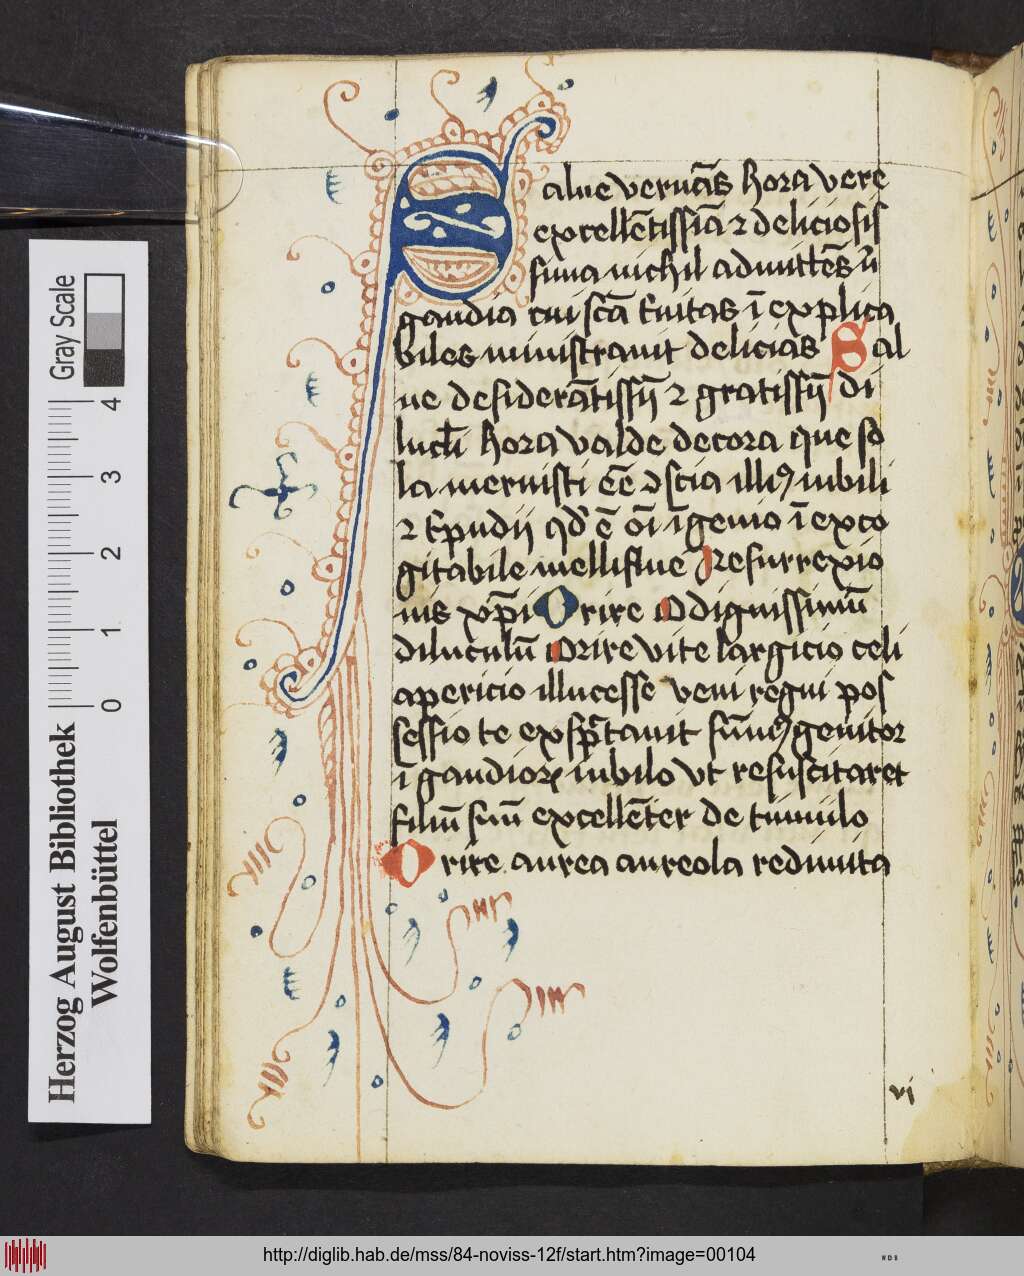 Salue vernās hora vere
excellētissīa ⁊ deliciosis
sima nichil admittēs ū
gaudia cui scā t̄nitas ī explica
biles ministrauit delicias Sal
ue desiderātissīā ⁊ gratissīā di
luch hora valde decora que so
la meruisti eē ꝯscia illiꝰ iubili
⁊ t̄pudii qd ē oī īgenio ī exco
gitabile mellisflue resurrexio
nis xp̄i Orire O dignissimū
diluculū Orire vite largicio celi
apericio illucesse veni regni pos
sessio te exsp̄tauit sūmꝰ genitor
i gaudioꝝ iubilo vt resuscitaret
filiū suū excellēter de tumulo
Orire aurea aureola redimita
vi
Gray Scale
0 1 2 3 4
Herzog August Bibliothek
Wolfenbüttel
http://diglib.hab.de/mss/84-noviss-12f/start.htm?image=00104